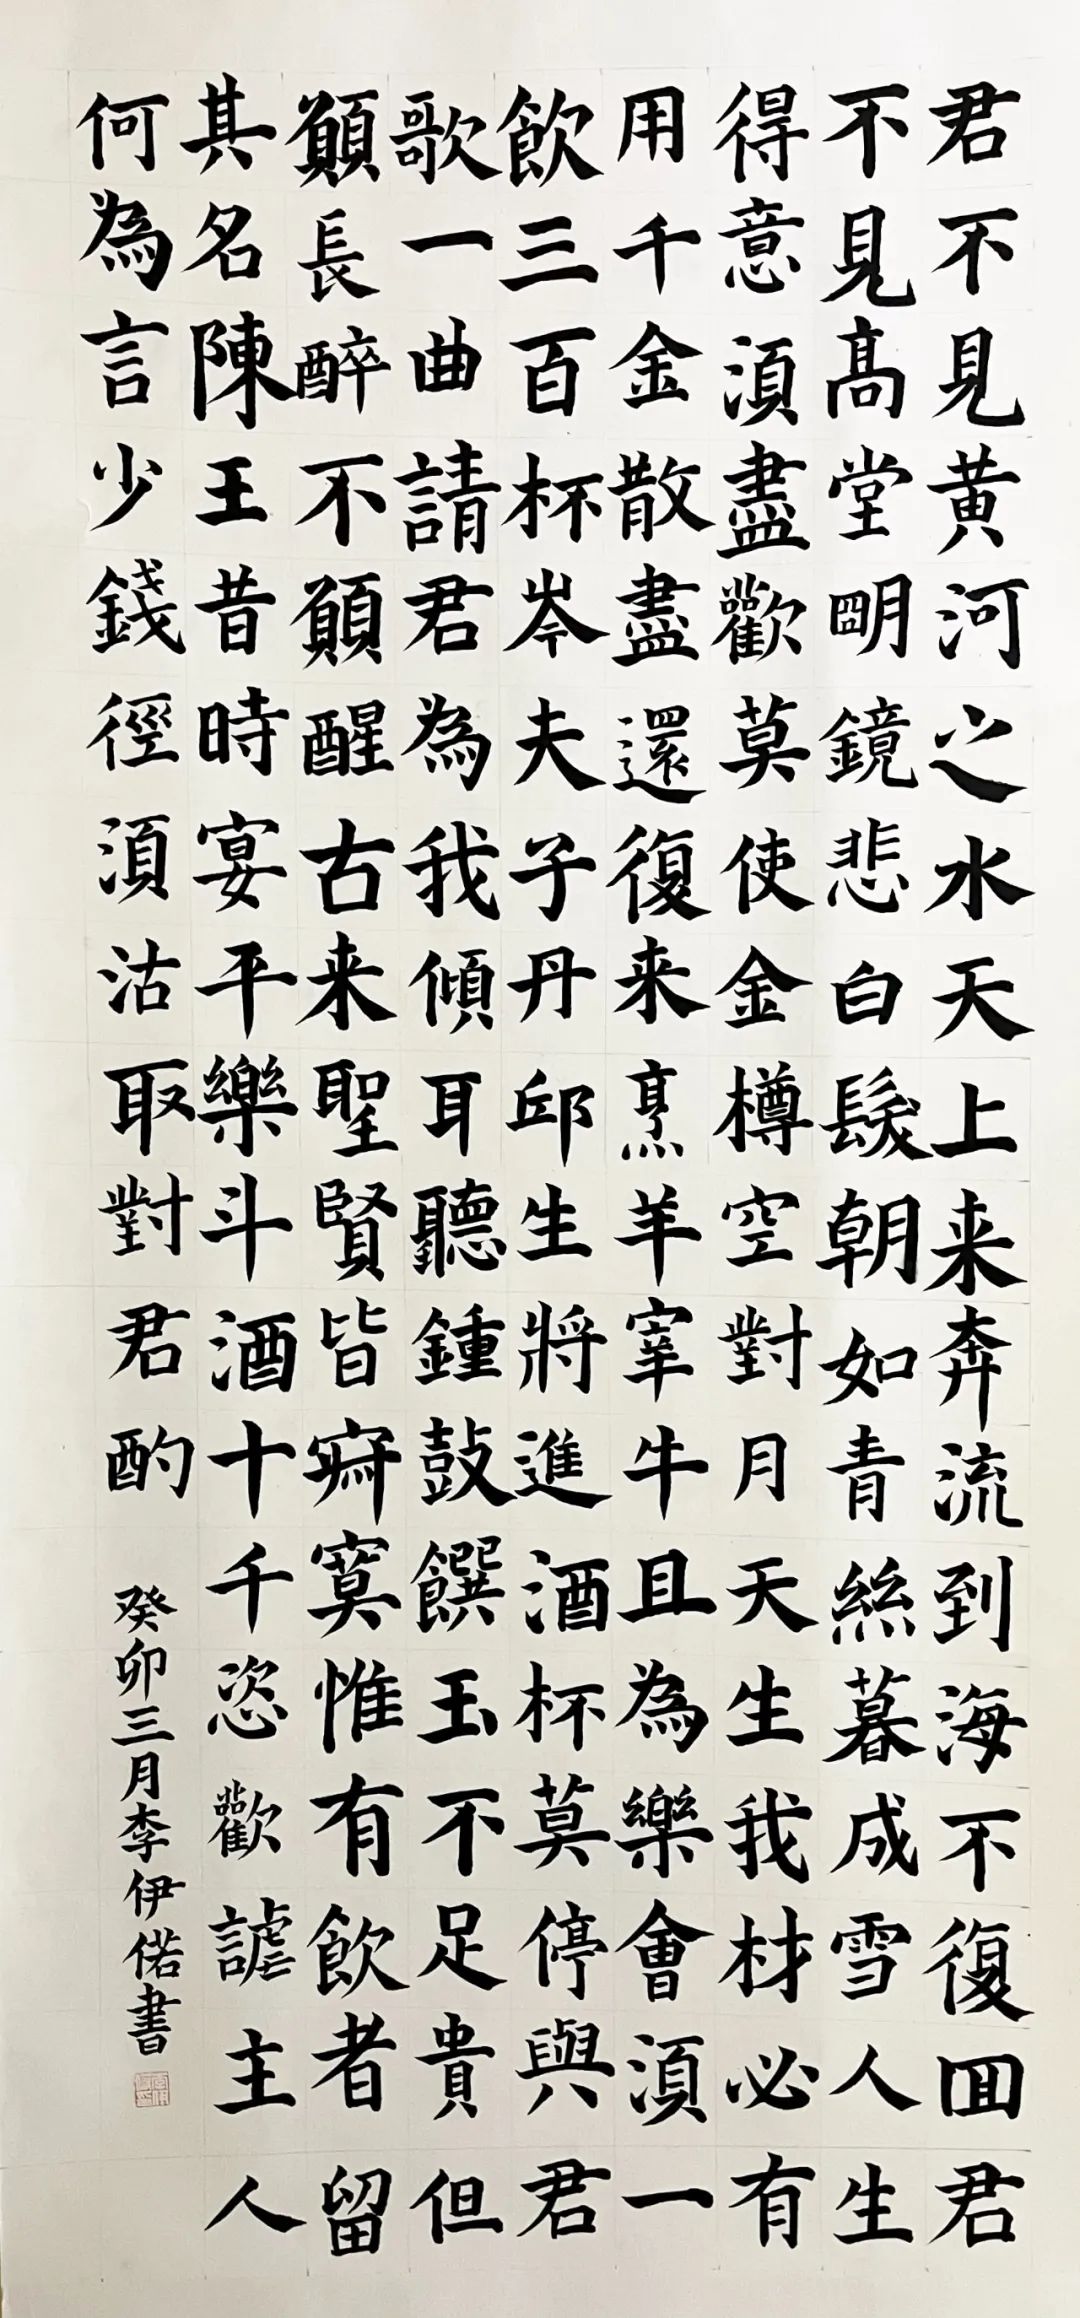 君不見黄河之水天上来奔流到海不復囬君
不見髙堂朙鏡悲白髮朝如青絲暮成雪人生
得意湏盡歡莫使金樽空對月天生我材必有
用千金散盡還復来烹羊宰牛且為樂會湏一
飲三百杯岑夫子丹邱生將進酒杯莫停與君
歌一曲請君為我傾耳聽鍾鼓饌玉不足貴但
願長醉不願醒古来聖賢皆寂寞惟有飲者留
其名陳王昔時宴平樂斗酒十千恣歡謔主人
何為言少錢徑湏沽取對君酌
癸卯三月李伊偌書